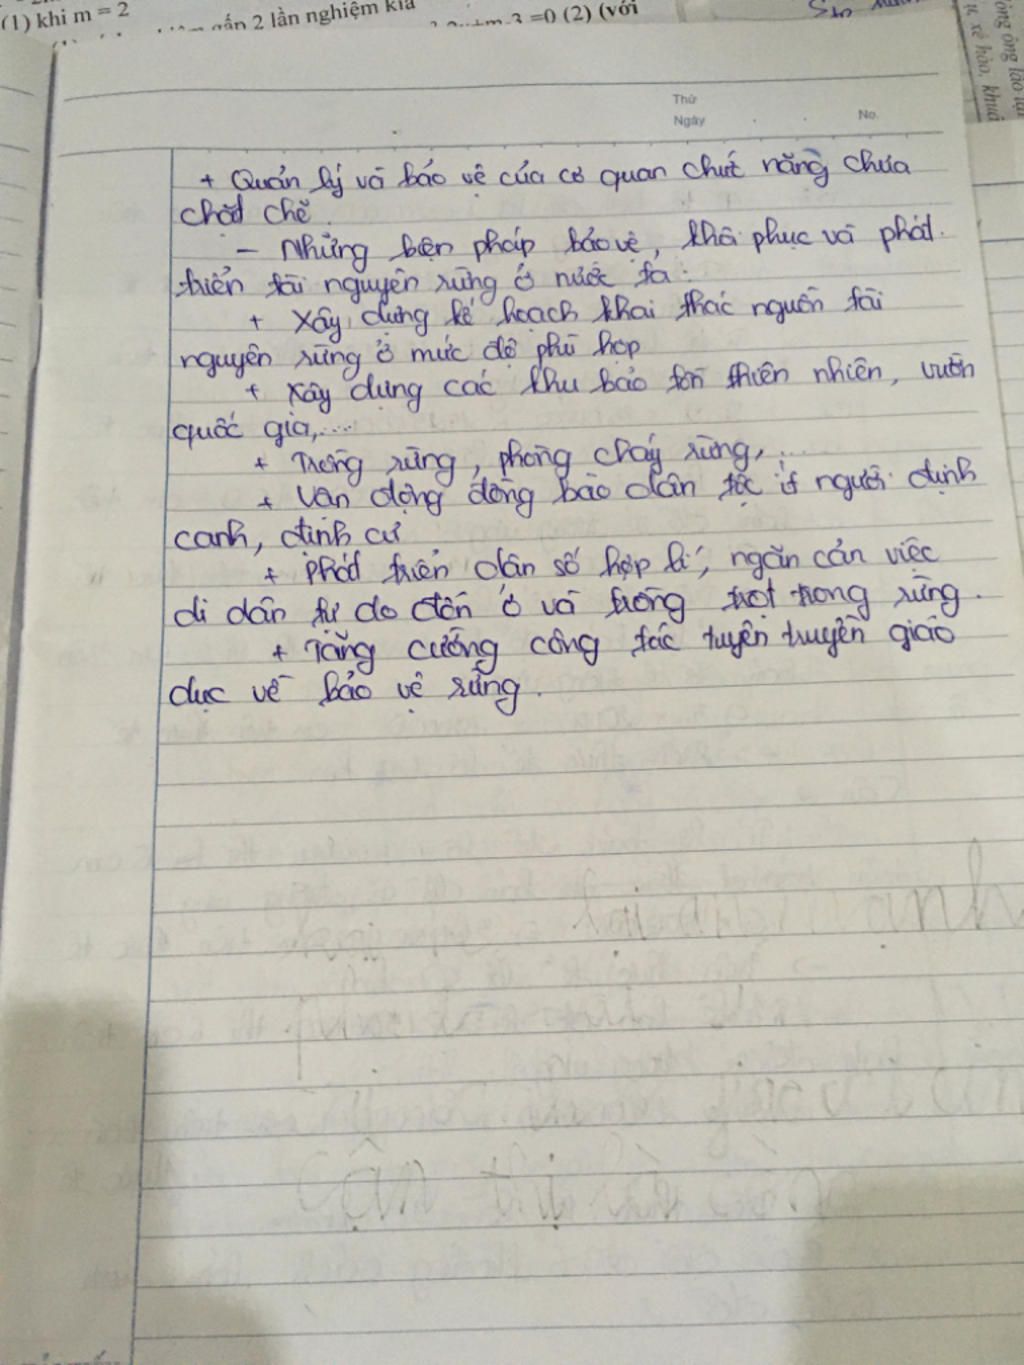 (1) khi m = 2
gấp 2 lần nghiệm kia
+m-3 =0 (2) (với
ông ông lão tài
u, xẻ hào, khuấ
Thứ
Ngày
No.
+ Quản lý và bảo vệ của cơ quan chức năng chưa
chặt chẽ.
- Những biện pháp bảo vệ, khôi phục và phát
triển tài nguyên rừng ở nước ta:
+ Xây dựng kế hoạch khai thác nguồn tài
nguyên rừng ở mức độ phù hợp
+ Xây dựng các khu bảo tồn thiên nhiên, vườn
quốc gia,...
+ Trồng rừng, phòng cháy rừng,...
+ Vận động đồng bào dân tộc ít người định
canh, định cư
+ Phát triển dân số hợp lí, ngăn cản việc
di dân tự do đến ở và trồng trọt trong rừng.
+ Tăng cường công tác tuyên truyền giáo
dục về bảo vệ rừng.